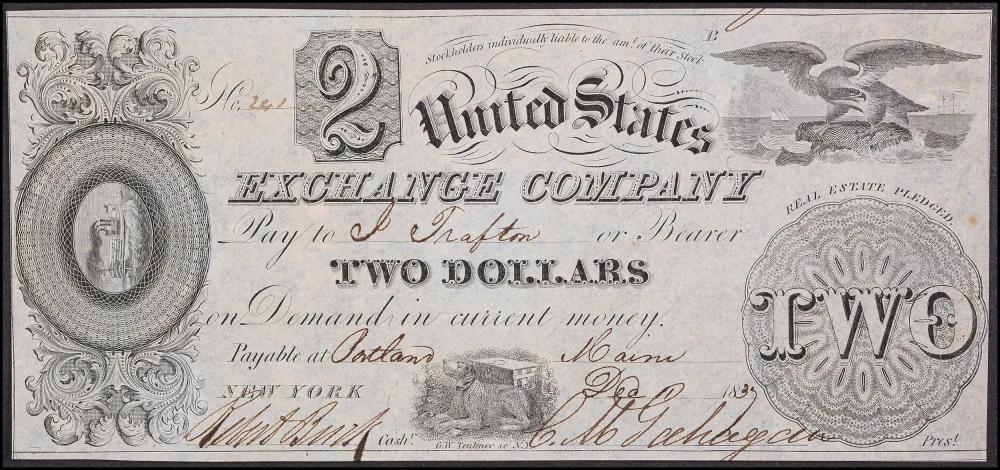 Stockholders individually liable to the amt. of their Stock.
B
No. 241
2
United States
EXCHANGE COMPANY
REAL ESTATE PLEDGED
Pay to J Trafton or Bearer
TWO DOLLARS
TWO
on Demand in current money.
Payable at Portland Maine
NEW YORK Dec 1837
Cashr.
G.W. Teubner sc N.Y.
Prest.